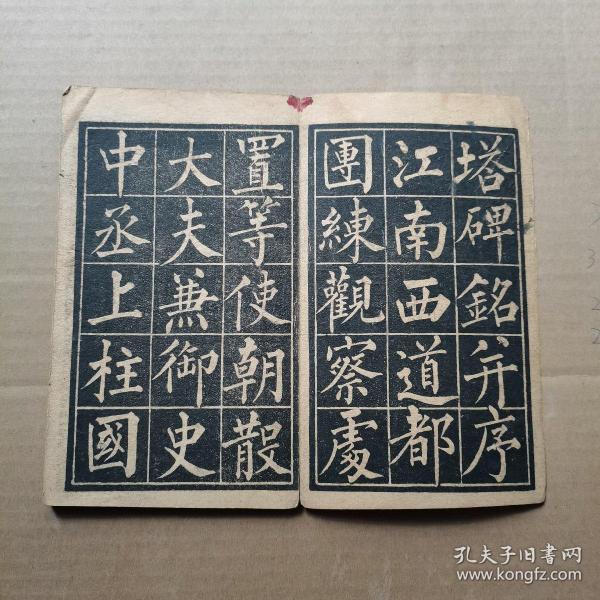 塔碑銘并序
江南西道都
團練觀察處
置等使朝散
大夫兼御史
中丞上柱國
孔夫子旧書网
www.kongfz.com